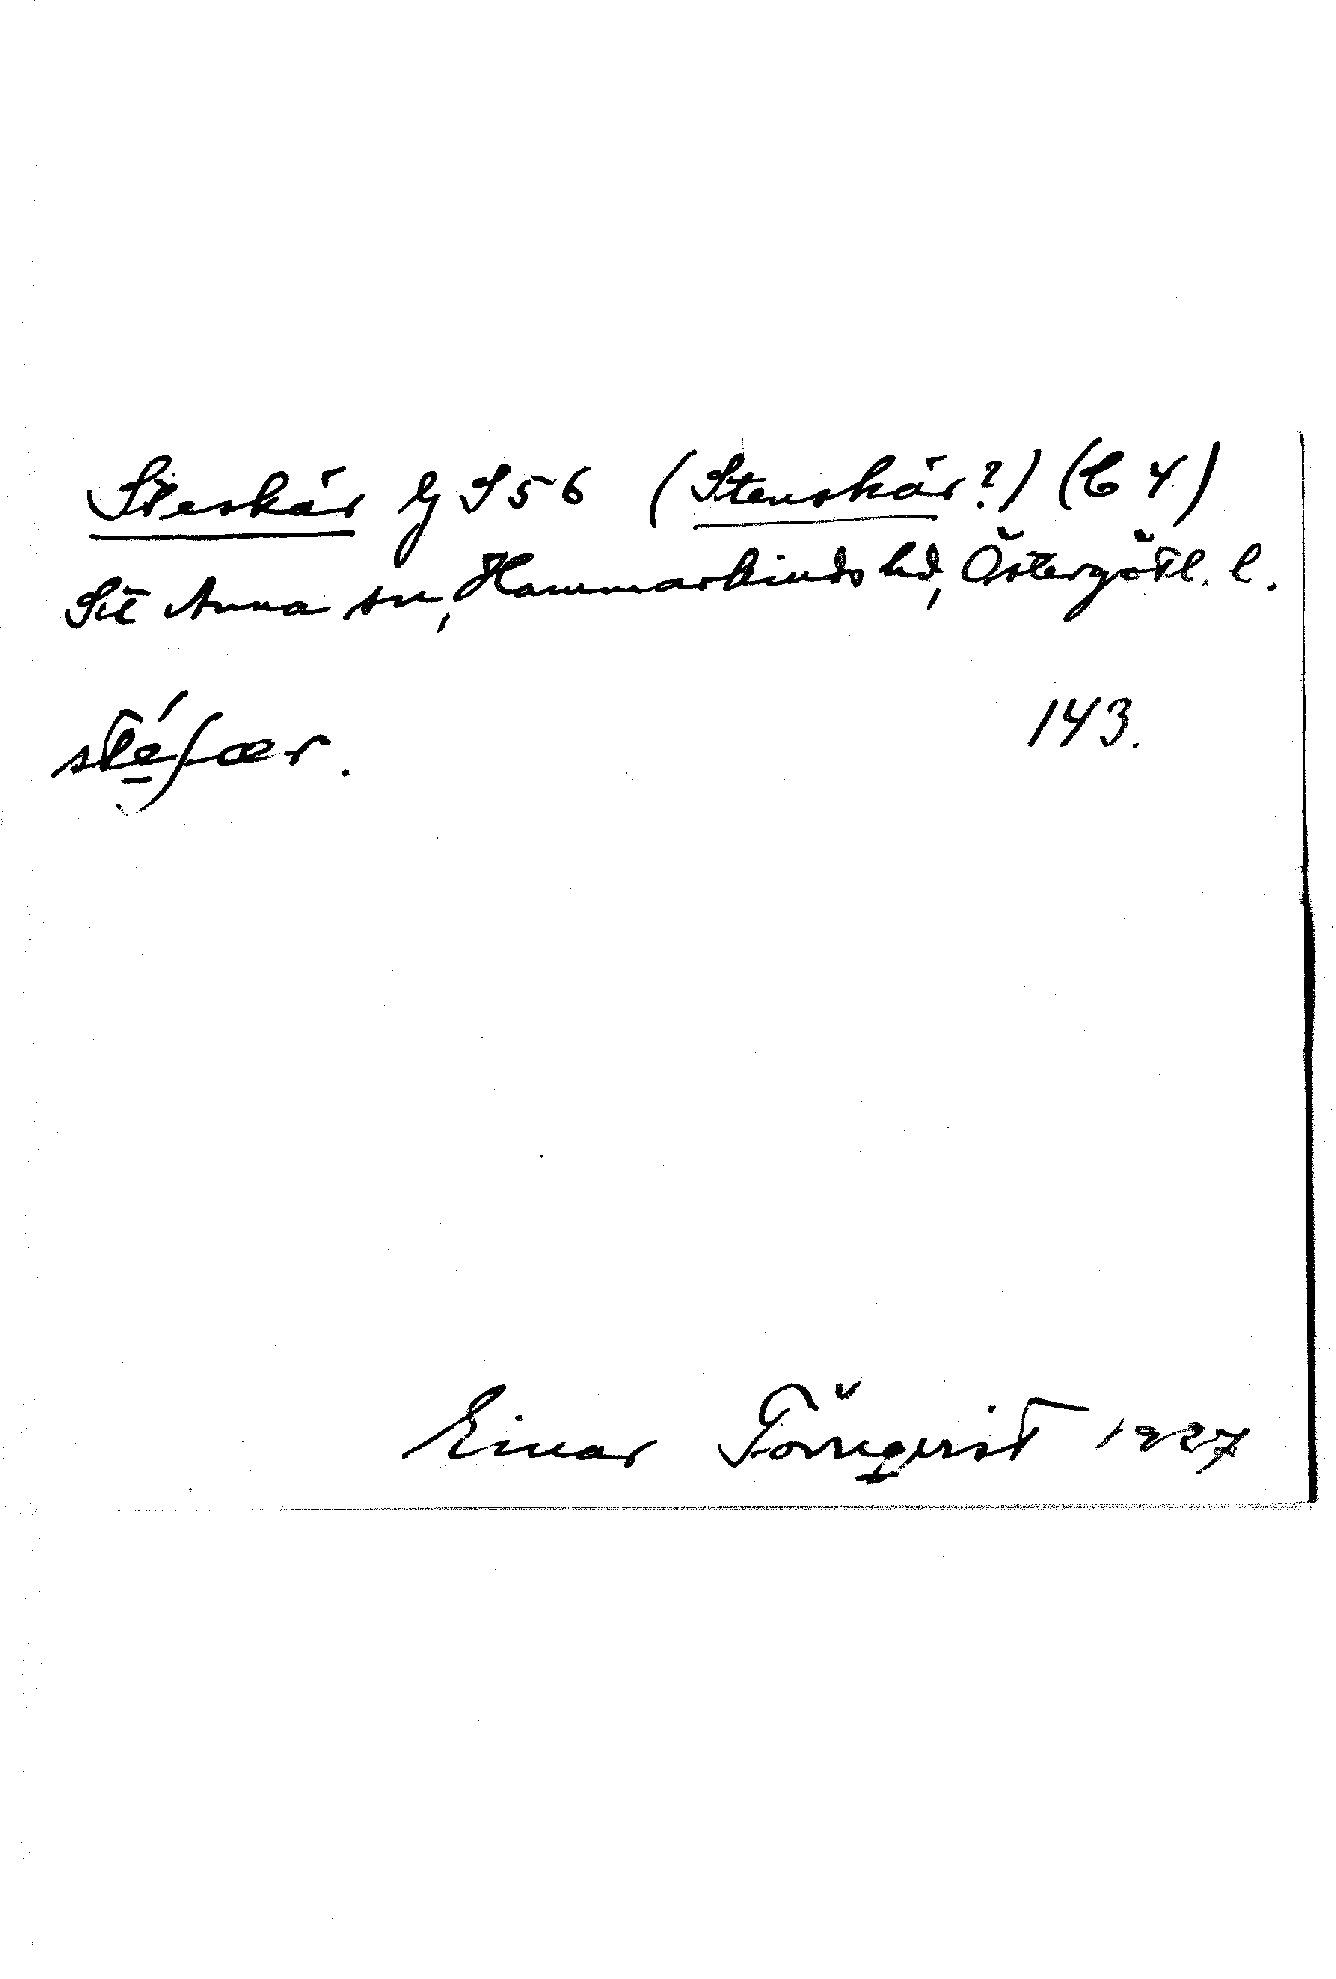 Steskär G S 56 (Stenskär?) (C 4)
S:t Anna sn, Hammarkinds hd, Östergötl. l.
stéʃær.
143.
Einar Törnqvist 1927